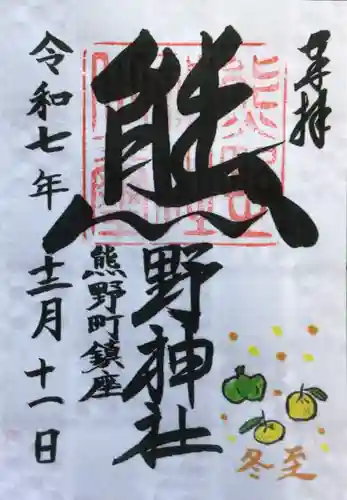 奉拝
熊野神社
熊野町鎮座
令和七年
十二月十一日
冬至